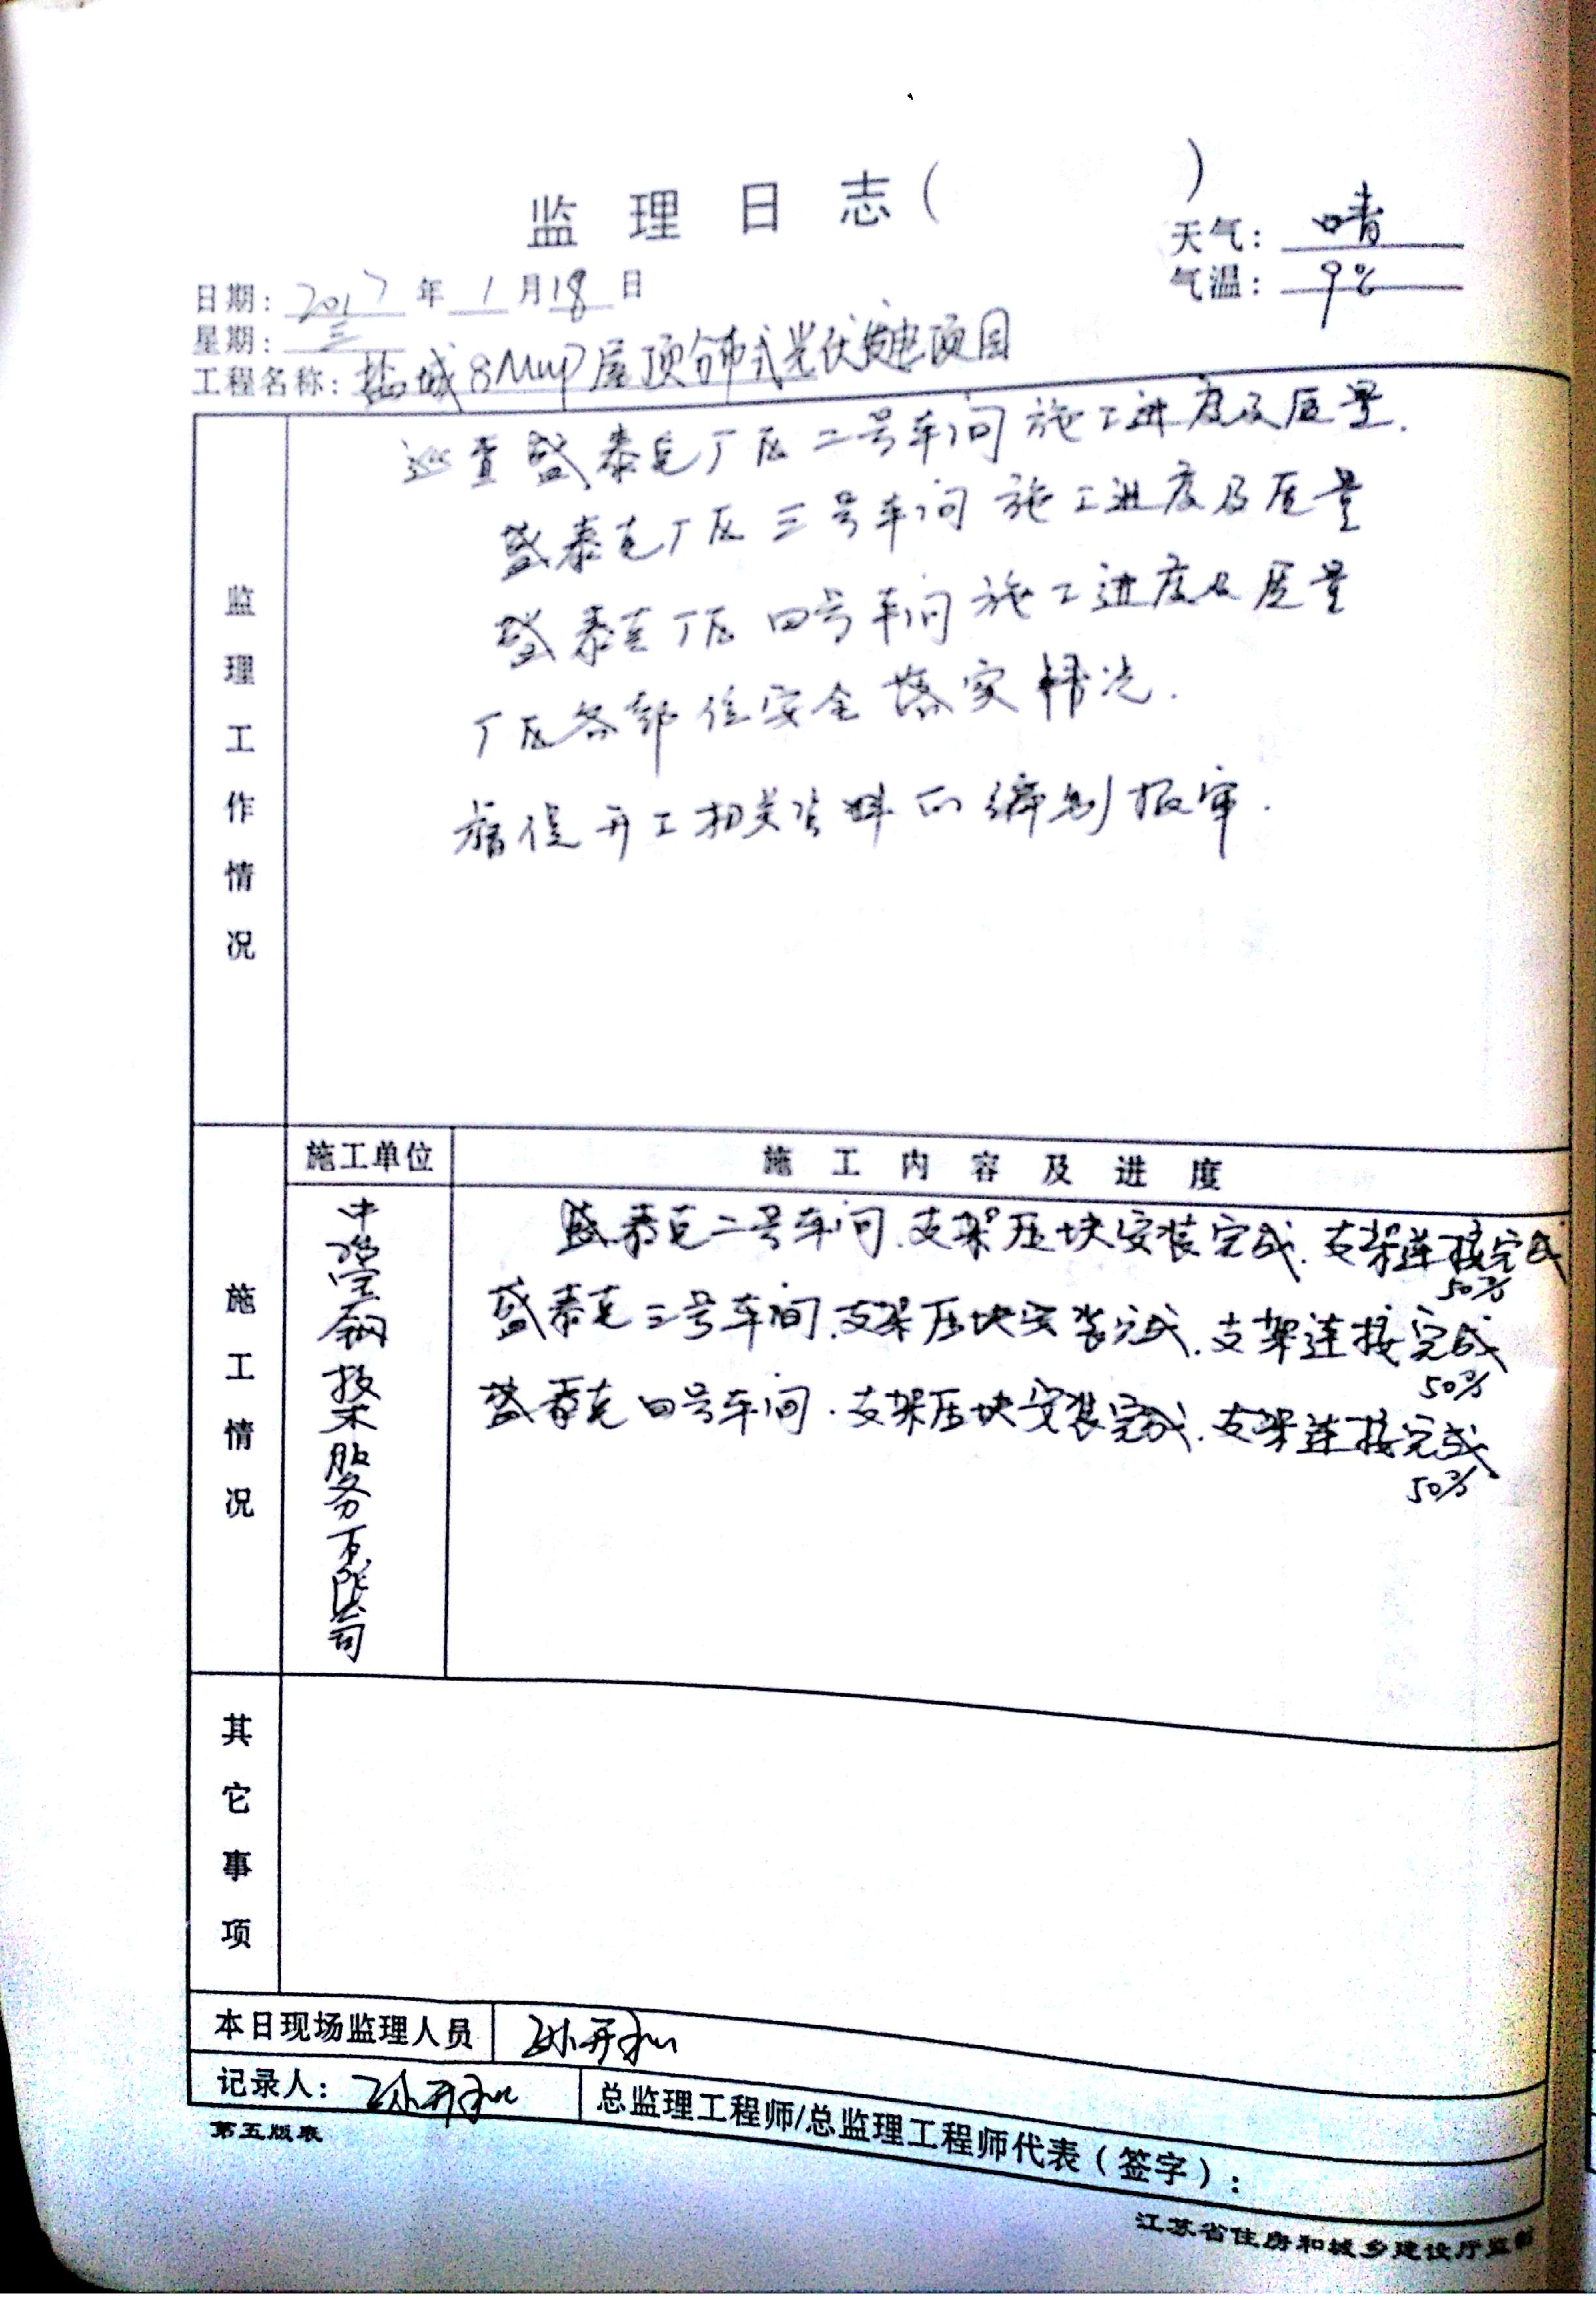 监理日志（ ）
天气：晴
日期：2017年1月18日
气温：9℃
星期：三
工程名称：盐城8Mwp屋顶分布式光伏发电项目
监理工作情况
巡查盛泰克厂区二号车间施工进度及质量.
盛泰克厂区三号车间施工进度及质量
盛泰克厂区四号车间施工进度及质量
厂区各部位安全落实情况.
督促开工相关资料的编制报审.
施工情况
施工单位
施工内容及进度
钢技术服务有限公司
盛泰克二号车间.支架压块安装完成.支架连接完成
50%
盛泰克三号车间.支架压块安装完成.支架连接完成
50%
盛泰克四号车间.支架压块安装完成.支架连接完成
50%
其它事项
本日现场监理人员 孙开和
记录人：孙开和
总监理工程师/总监理工程师代表（签字）：
第五版表
江苏省住房和城乡建设厅监制